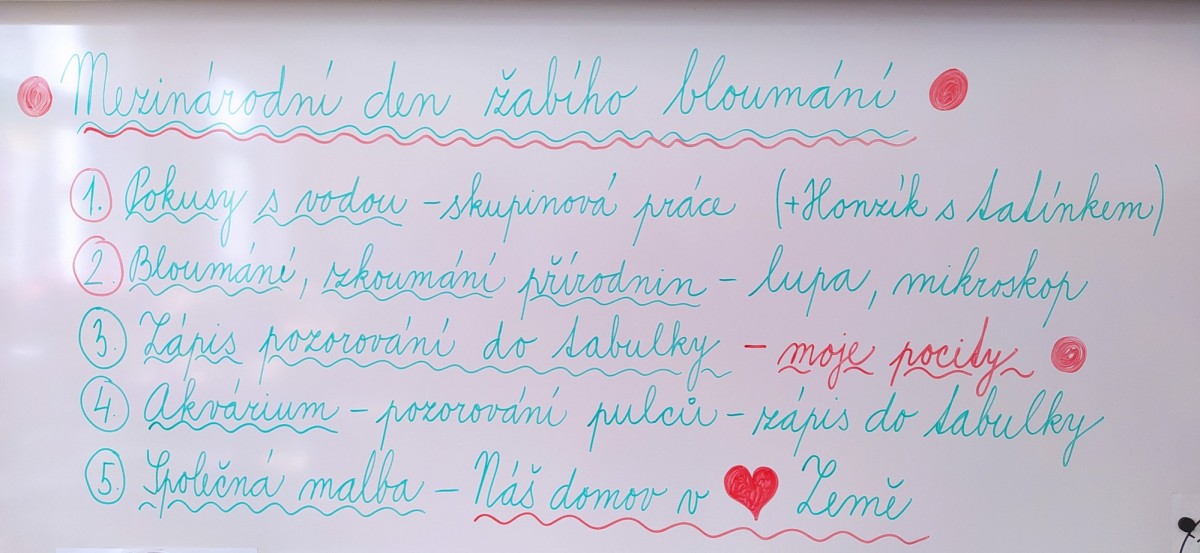 Mezinárodní den žabího bloumání
1. Pokusy s vodou – skupinová práce (+Honzík s tatínkem)
2. Bloumání, zkoumání přírodnin – lupa, mikroskop
3. Zápis pozorování do tabulky – moje pocity
4. Akvárium – pozorování pulců – zápis do tabulky
5. Společná malba – Náš domov v ♥ Země